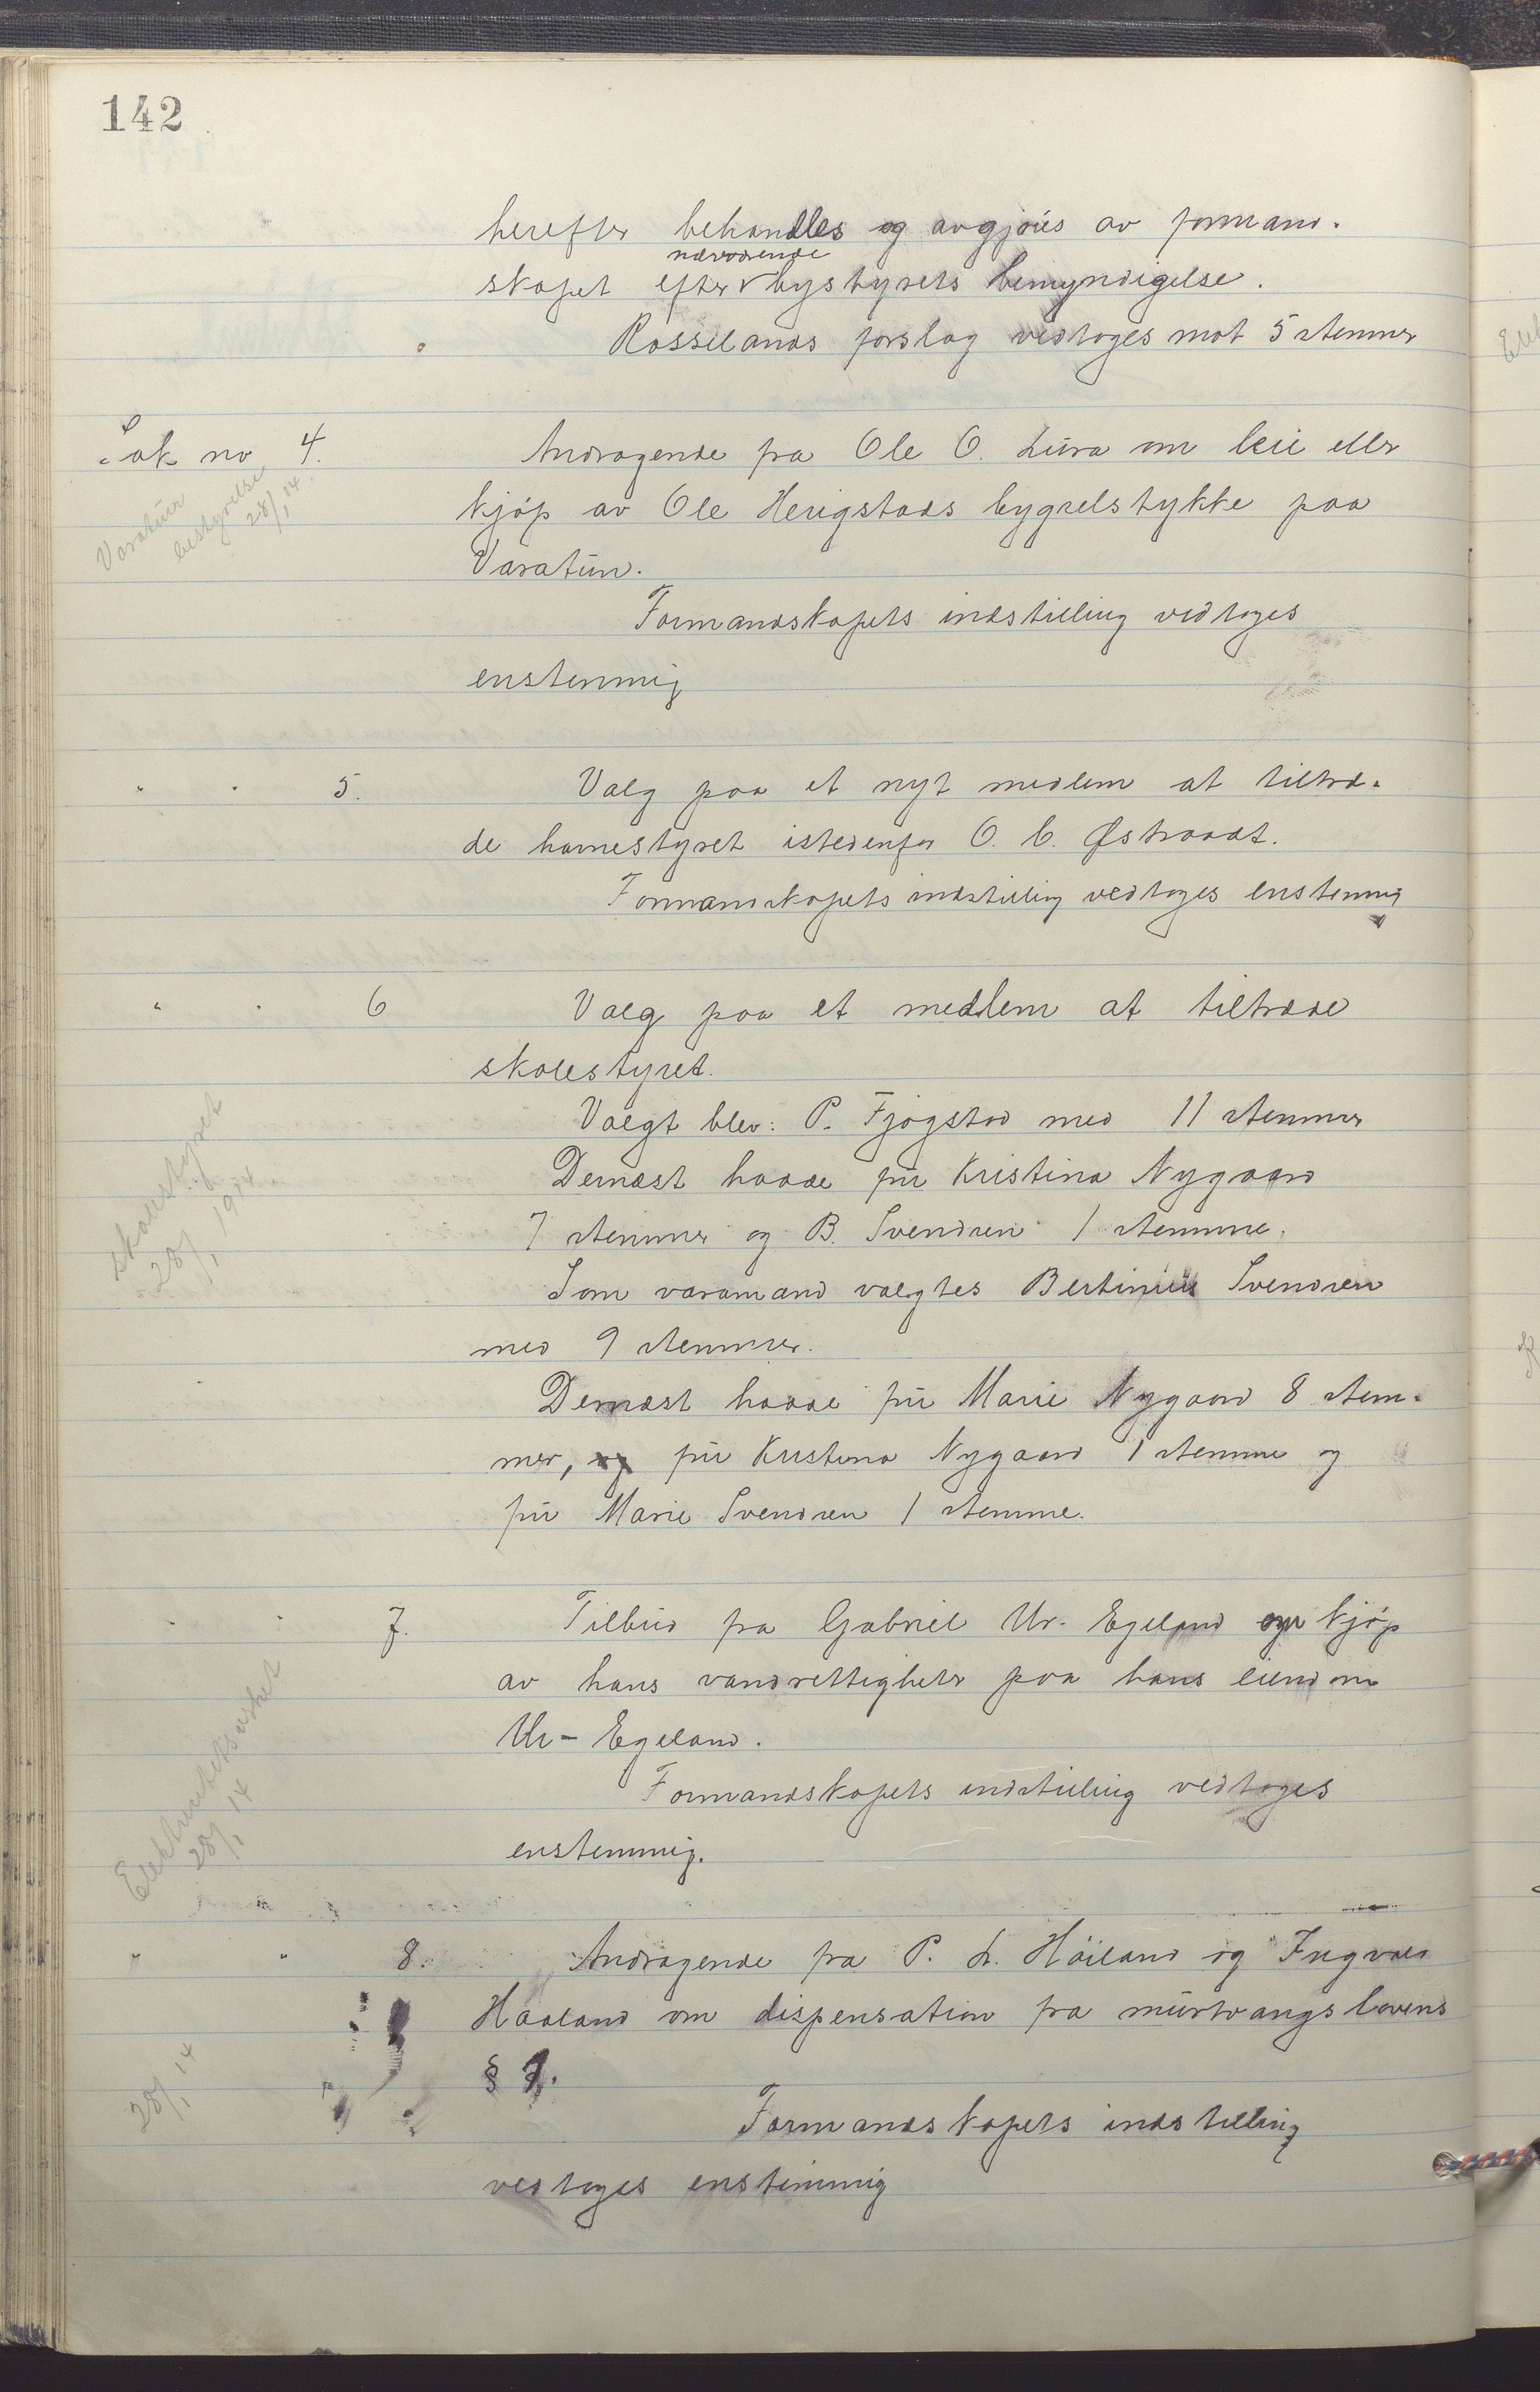 142
herefter behandles og avgjøres av formand-
nærværende
skapet efter bystyrets bemyndigelse.
Rosselands forslag vedtoges mot 5 stemmer
Sak no 4.
Varatun
bestyrelse
28/1 14.
Andragende fra Ole O. Lura om leie eller
kjøp av Ole Herigstads bygselstykke paa
Varatun.
Formandskapets indstilling vedtoges
enstemmig
" " 5.
Valg paa et nyt medlem at tiltræ-
de havnestyret istedenfor O. C. Østraadt.
Formandskapets indstilling vedtoges enstemmig
" " 6
Valg paa et medlem at tiltræde
skolestyret.
Skolestyret
28/1 1914.
Valgt blev: P. Fjogstad med 11 stemmer
Dernæst havde fru Kristina Nygaard
7 stemmer og B. Svendsen 1 stemme.
Som varamand valgtes Bertinius Svendsen
med 9 stemmer.
Dernæst havde fru Marie Nygaard 8 stem-
mer, og fru Kristina Nygaard 1 stemme og
fru Marie Svendsen 1 stemme.
" " 7.
Tilbud fra Gabriel Ur-Egeland om kjøp
av hans vandrettigheter paa hans eiendom
Ur-Egeland.
Elektricitetsverket
28/1 14
Formandskapets indstilling vedtoges
enstemmig.
" " 8.
Andragende fra P. L. Høiland og Ingvald
Haaland om dispensation fra murtvangslovens
§ 7.
28/1 14
Formandskapets indstilling
vedtoges enstemmig